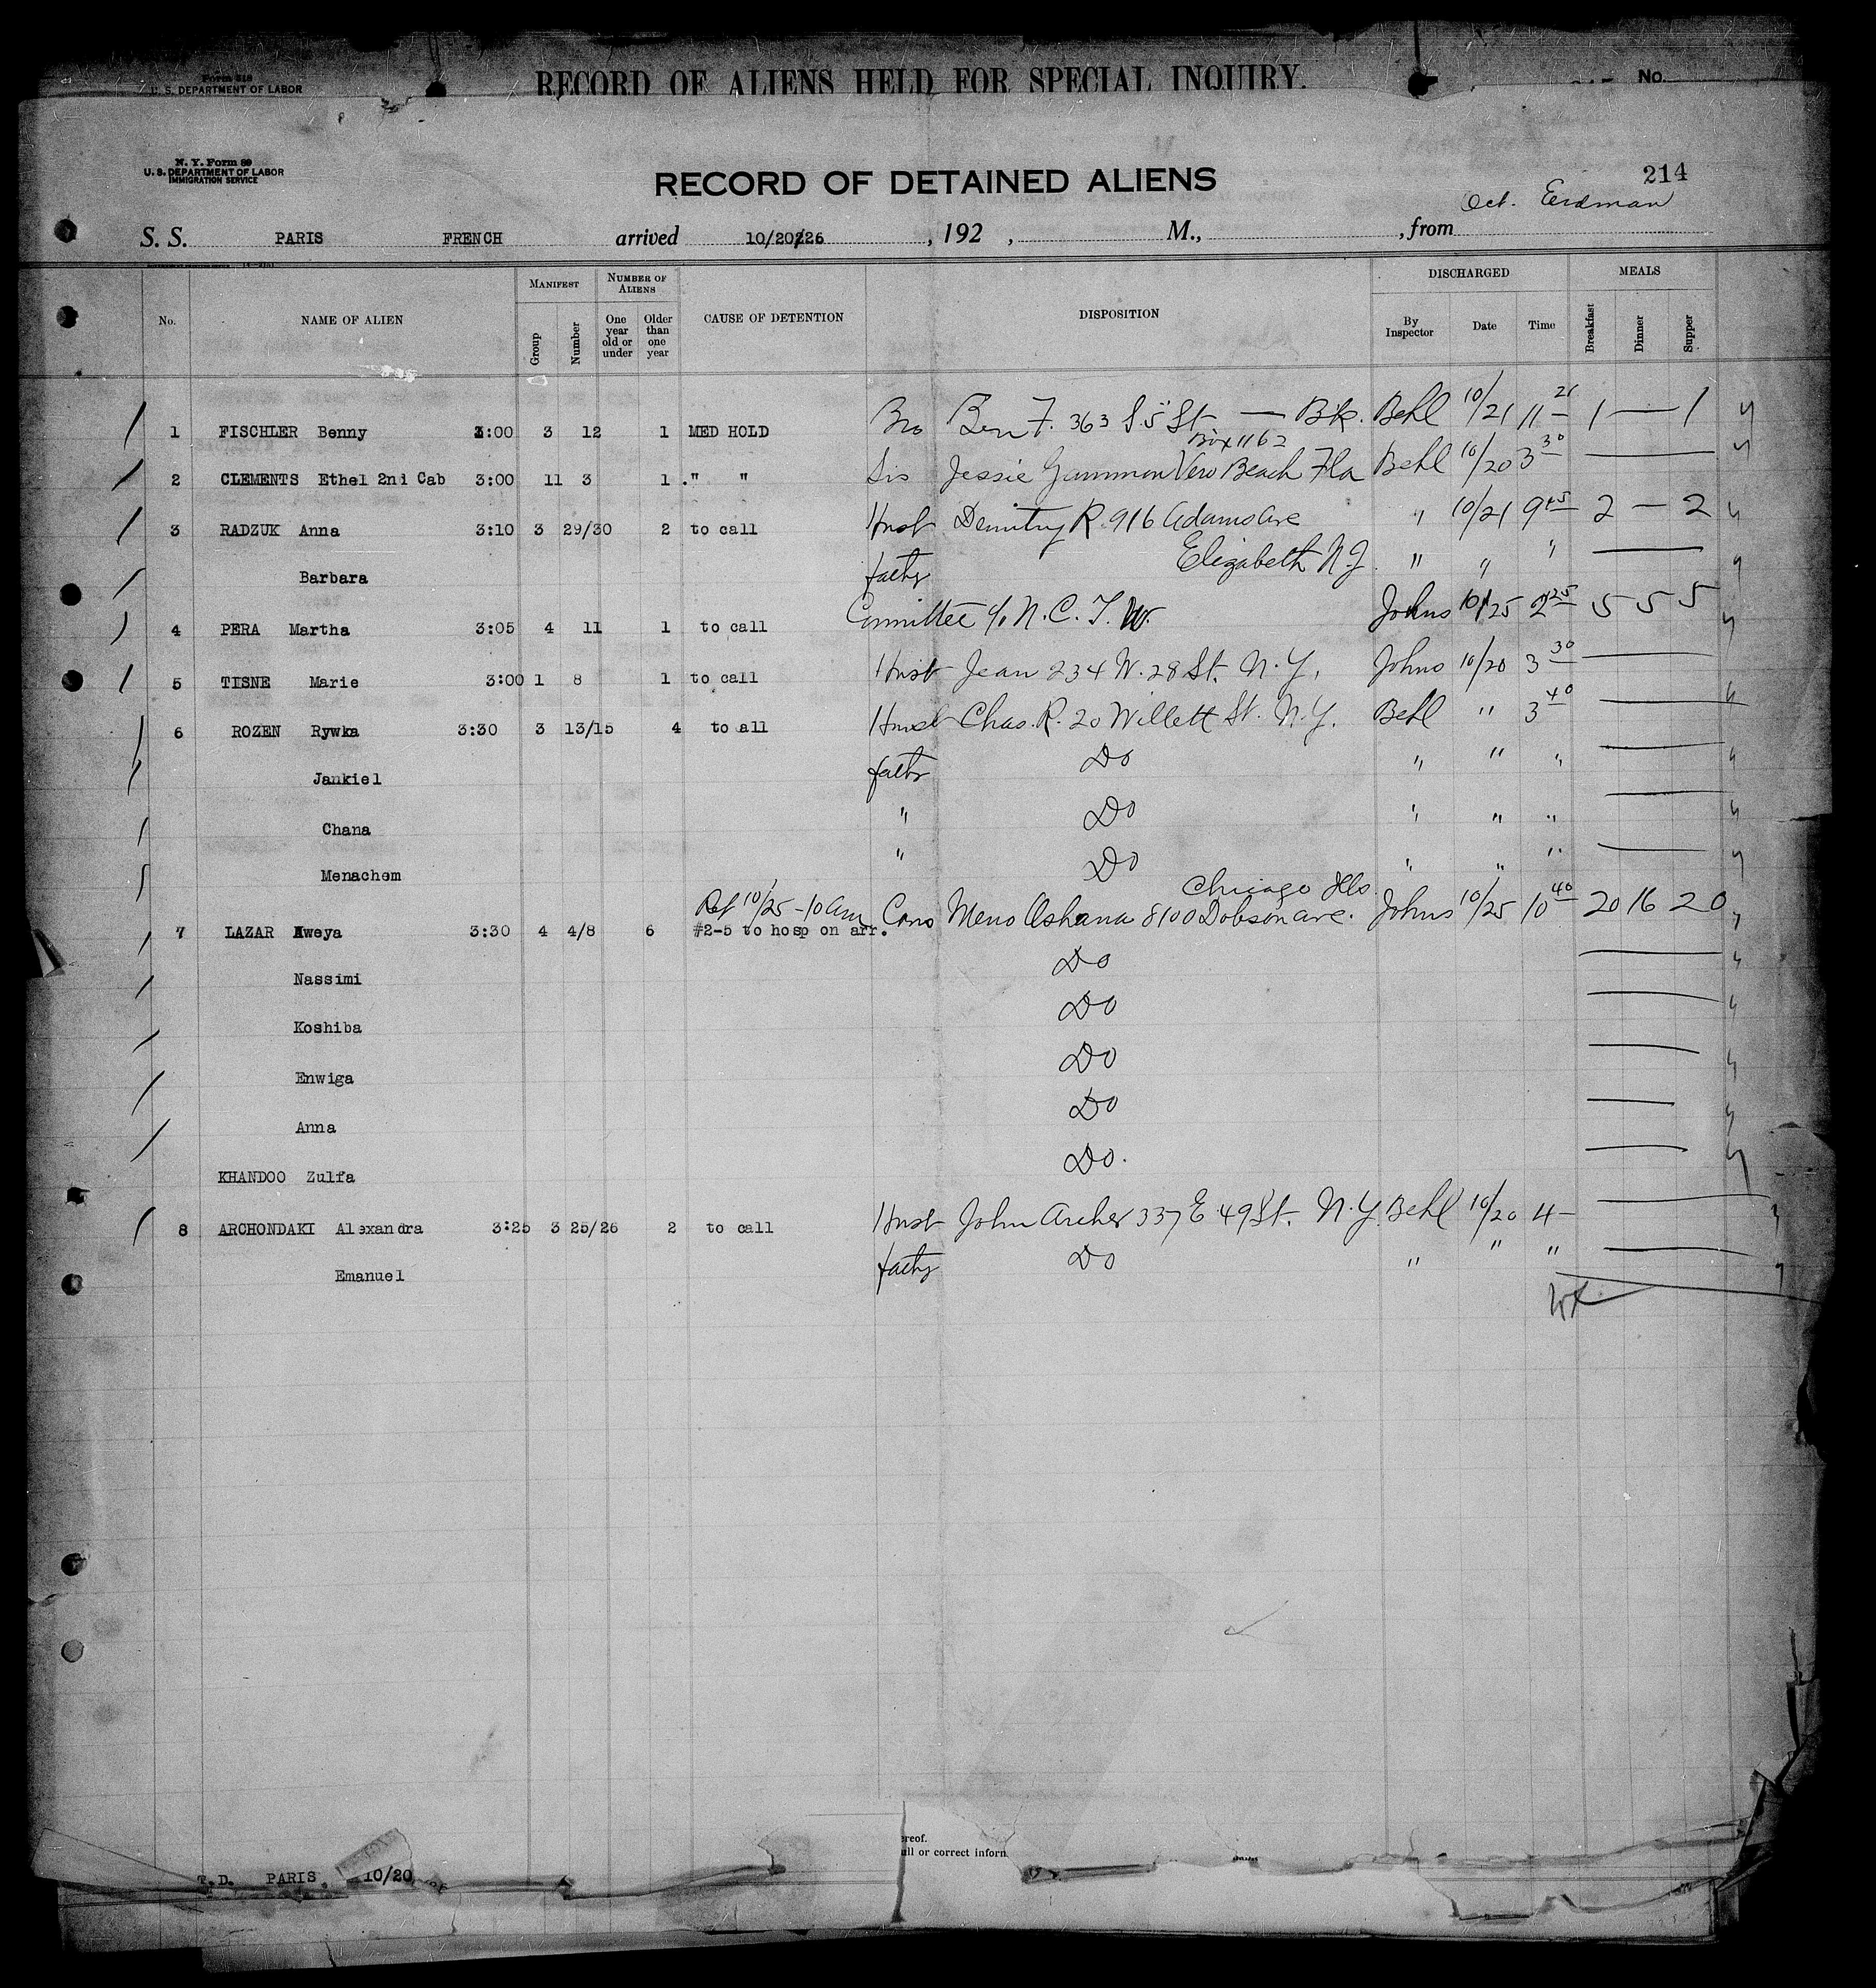 Form 518
U. S. DEPARTMENT OF LABOR
RECORD OF ALIENS HELD FOR SPECIAL INQUIRY.
No.
N. Y. Form 89
U. S. DEPARTMENT OF LABOR
IMMIGRATION SERVICE
RECORD OF DETAINED ALIENS
214
Oct. Erdman
S. S. PARIS FRENCH arrived 10/20/26, 192 , M., , from
No. NAME OF ALIEN MANIFEST Group Number NUMBER OF ALIENS One year old or under Older than one year CAUSE OF DETENTION DISPOSITION DISCHARGED By Inspector Date Time MEALS Breakfast Dinner Supper
1 FISCHLER Benny 3:00 3 12 1 MED HOLD Bro Ben F. 363 S. 5 St — Bk. Behl 10/21 11 1 — 1
Box 1162
2 CLEMENTS Ethel 2nd Cab 3:00 11 3 1 " " Sis Jessie Gammon Vero Beach Fla Behl 10/20 3 30
3 RADZUK Anna 3:10 3 29/30 2 to call Husb Dimitry R. 916 Adams Ave " 10/21 9 45 2 — 2
Barbara fathr Elizabeth N.J. " " "
4 PERA Martha 3:05 4 11 1 to call Committee c/o N. C. J. W. Johns 10/25 2 25 5 5 5
5 TISNE Marie 3:00 1 8 1 to call Husb Jean 234 W. 28 St. N.Y. Johns 10/20 3 30
6 ROZEN Rywka 3:30 3 13/15 4 to all Husb Chas. R. 20 Willett St. N.Y. Behl " 3 40
Jankiel fathr Do " " "
Chana " Do " " "
Menachem " Do " " "
Ref 10/25 - 10 am Chicago Ills
7 LAZAR Aweya 3:30 4 4/8 6 #2-5 to hosp on arr. Cous Meno Oshana 8100 Dobson ave. Johns 10/25 10 40 20 16 20
Nassimi Do
Koshiba Do
Enwiga Do
Anna Do
KHANDOO Zulfa Do.
8 ARCHONDAKI Alexandra 3:25 3 25/26 2 to call Husb John Archer 337 E 49 St. N.Y. Behl 10/20 4 —
Emanuel fathr Do " " "
ereof.
ull or correct inform
T.D. PARIS. 10/20